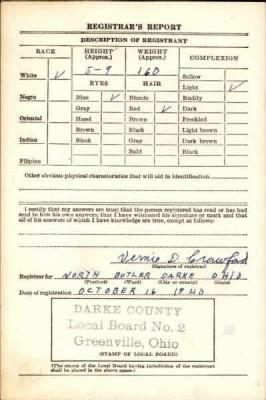 REGISTRAR'S REPORT
DESCRIPTION OF REGISTRANT
RACE HEIGHT (Approx.) WEIGHT (Approx.) COMPLEXION
White ✓ 5-9 160 Sallow
EYES HAIR Light ✓
Negro Blue ✓ Blonde Ruddy
Gray Red ✓ Dark
Oriental Hazel Brown Freckled
Brown Black Light brown
Indian Black Gray Dark brown
Bald Black
Filipino
Other obvious physical characteristics that will aid in identification
I certify that my answers are true; that the person registered has read or has had
read to him his own answers; that I have witnessed his signature or mark and that
all of his answers of which I have knowledge are true, except as follows:
Vernie D Crawford
(Signature of registrar)
Registrar for NORTH BUTLER DARKE OHIO
(Precinct) (Ward) (City or county) (State)
Date of registration OCTOBER 16 1940
DARKE COUNTY
Local Board No. 2
Greenville, Ohio
(STAMP OF LOCAL BOARD)
(The stamp of the Local Board having jurisdiction of the registrant
shall be placed in the above space.)